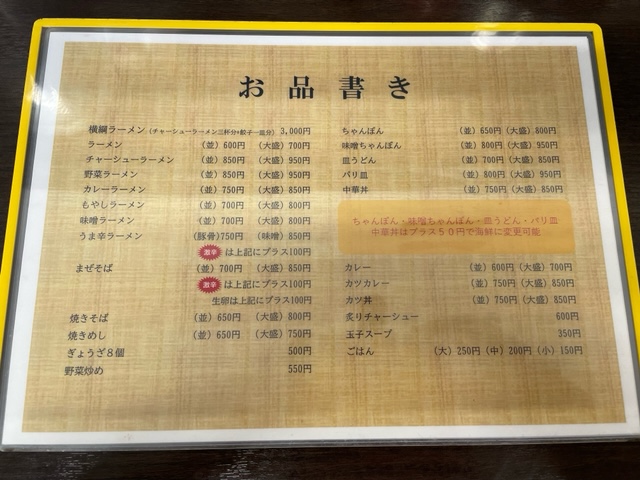 お品書き
横綱ラーメン(チャーシューラーメン三杯分+餃子一皿分) 3,000円
ラーメン (並) 600円 (大盛) 700円
チャーシューラーメン (並) 850円 (大盛) 950円
野菜ラーメン (並) 850円 (大盛) 950円
カレーラーメン (並) 750円 (大盛) 850円
もやしラーメン (並) 700円 (大盛) 800円
味噌ラーメン (並) 700円 (大盛) 800円
うま辛ラーメン (豚骨)750円 (味噌) 850円
激辛 は上記にプラス100円
まぜそば (並) 700円 (大盛) 850円
激辛 は上記にプラス100円
生卵は上記にプラス100円
焼きそば (並) 650円 (大盛) 800円
焼きめし (並) 650円 (大盛) 750円
ぎょうざ8個 500円
野菜炒め 550円
ちゃんぽん (並) 650円 (大盛) 800円
味噌ちゃんぽん (並) 800円 (大盛) 950円
皿うどん (並) 700円 (大盛) 850円
バリ皿 (並) 800円 (大盛) 950円
中華丼 (並) 750円 (大盛) 850円
ちゃんぽん・味噌ちゃんぽん・皿うどん・バリ皿
中華丼はプラス50円で海鮮に変更可能
カレー (並) 600円 (大盛) 700円
カツカレー (並) 750円 (大盛) 850円
カツ丼 (並) 750円 (大盛) 850円
炙りチャーシュー 600円
玉子スープ 350円
ごはん (大) 250円 (中) 200円 (小) 150円